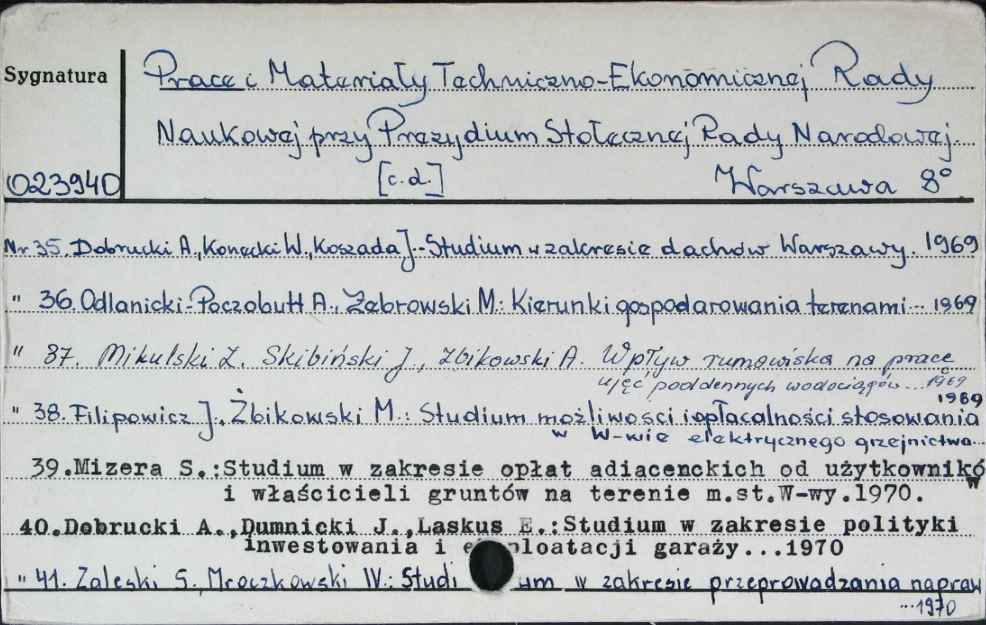 Sygnatura
Prace i Materiały Techniczno-Ekonomicznej Rady
Naukowej przy Prezydium Stołecznej Rady Narodowej.
023940 [c.d.] Warszawa 8°
Nr 35. Dobrucki A., Konecki W., Koszada J.- Studium w zakresie dachów Warszawy. 1969
" 36. Odlanicki-Poczobutt A., Żebrowski M.: Kierunki gospodarowania terenami... 1969
" 37. Mikulski Z. Skibiński J., Zbikowski A. Wpływ rumowiska na pracę
ujęć poddennych wodociągów... 1969
" 38. Filipowicz J., Żbikowski M.: Studium możliwości i opłacalności stosowania 1969
w W-wie elektrycznego grzejnictwa...
39.Mizera S.:Studium w zakresie opłat adiacenckich od użytkowników
i właścicieli gruntów na terenie m.st.W-wy.1970.
40.Dobrucki A.,Dumnicki J.,Laskus E.:Studium w zakresie polityki
inwestowania i eksploatacji garaży...1970
" 41. Zaleski S., Mroczkowski W.: Studium w zakresie przeprowadzania napraw
...1970